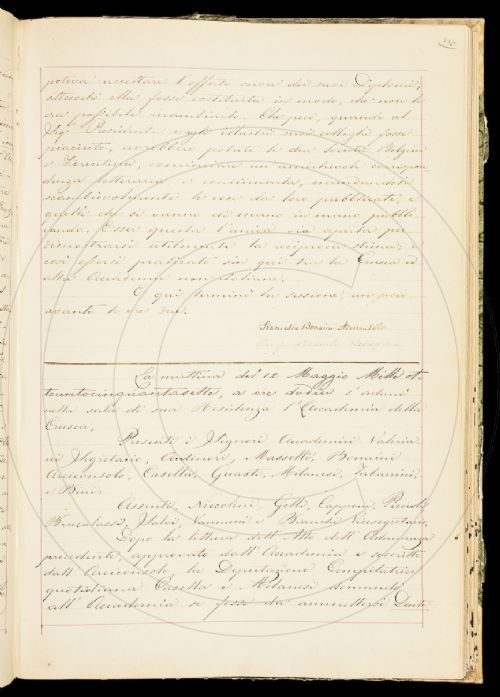 poteva accettare l'offerta onor dei suoi Diplomi,
attesochè ella fosse costituita in modo, che non le
era possibile ricambiarli. Che però, quando al
Sig. Presidente e agli illustri suoi colleghi fosse
piaciuto, avrebbero potuto le due Società Belgica
e Fiorentina, cominciare un amichevole corrispon
denza letteraria, e continuarla, mandandosi
scambievolmente le cose da loro pubblicate, e
quelle che si vanno di mano in mano pubbli
cando. Esser questa l'unica via aperta per
dimostrarsi utilmente la reciproca stima; e
così essersi praticato sin qui tra la Crusca ed
altre Accademie non italiane.
E qui terminò la sessione, un poco
avanti le ore due.
Francesco Bonaini Arciconsolo
La mattina dei 12 Maggio Mille ot
tocentocinquantasette, a ore dodici s'adunò
nella sala di sua Residenza l'Accademia della
Crusca.
Presenti i Signori Accademici Valeria
ni Segretario, Arcangeli, Masselli, Bonaini
Arciconsolo, Casella, Guasti, Milanesi, Tabarrini,
e Bini.
Assenti, Niccolini, Gelli, Capponi,
Brucalassi, Italia, Vannucci e Bianchi Vicesegretario.
Dopo la lettura dell'Atto dell'Adunanza
precedente, approvato dall'Accademia e soscritto
dall'Arciconsolo, la Deputazione Compilatrice
quotidiana Casella e Milanesi domandò
all'Accademia se fosse da ammettersi Dente